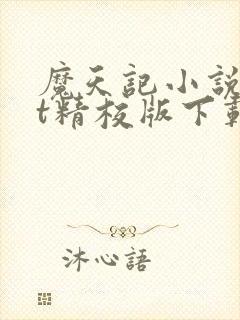 魔天記小説
t精校版下載
沐心語